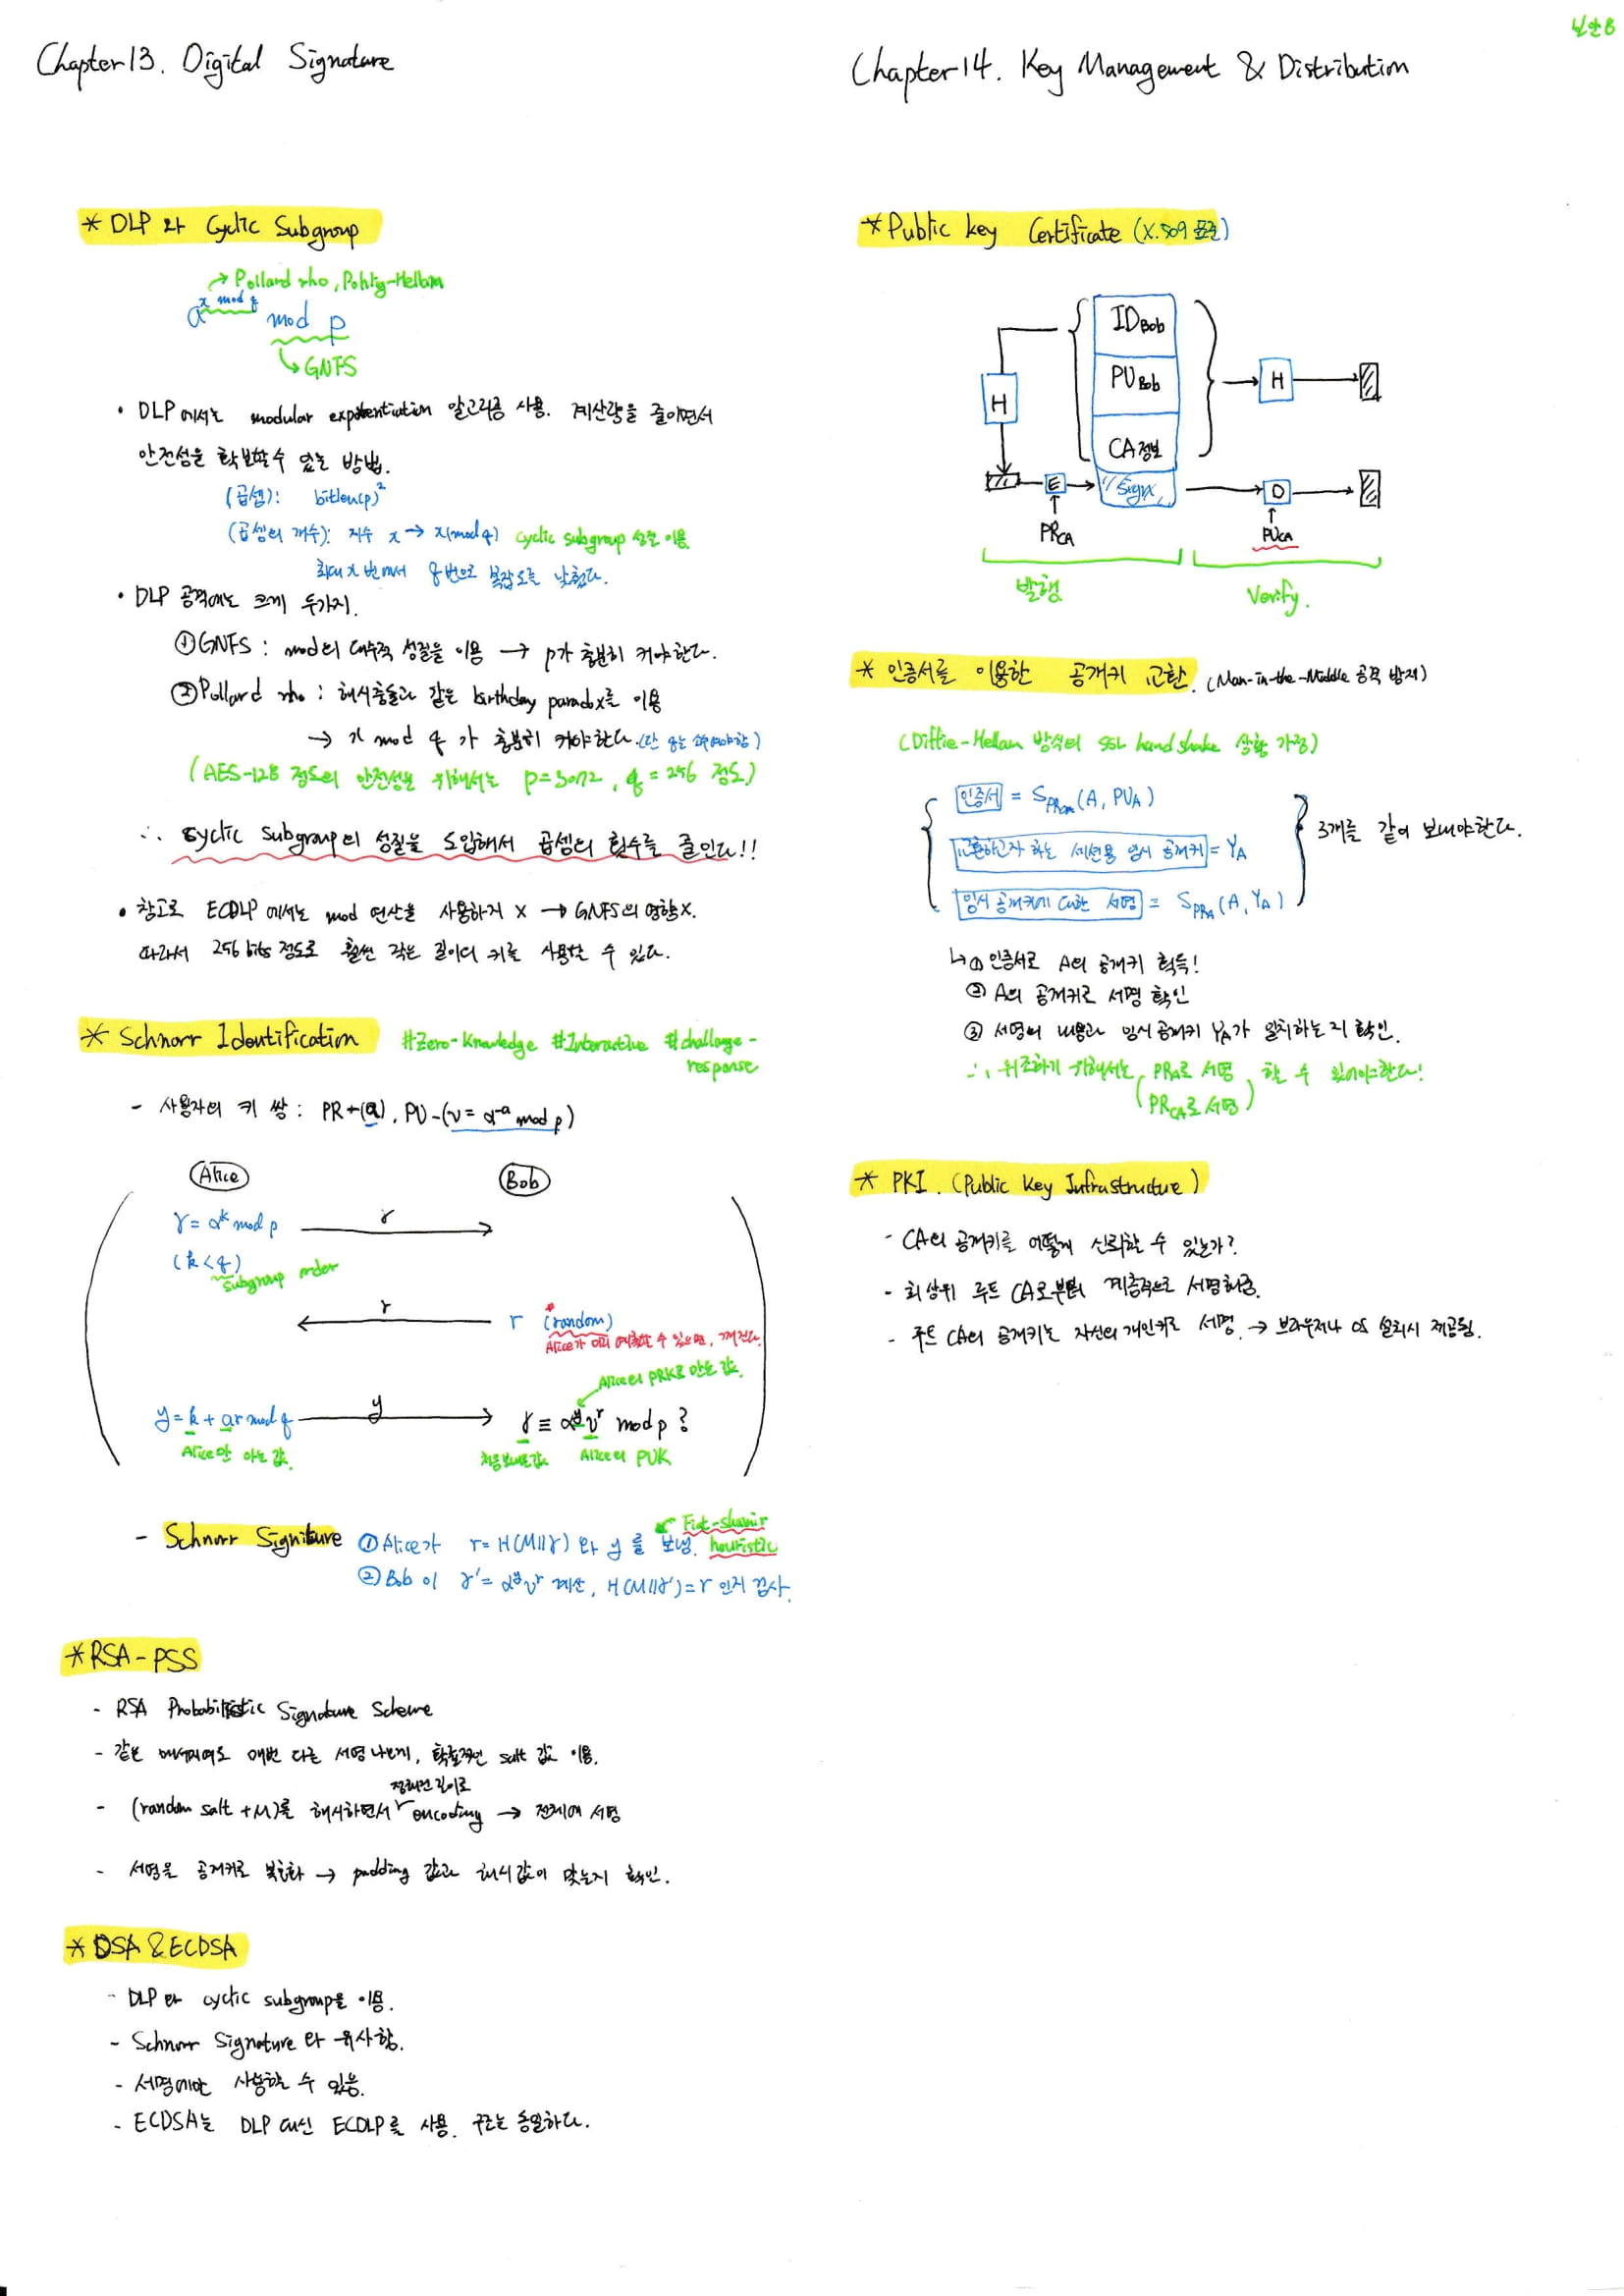 보안8
Chapter13. Digital Signature
* DLP 와 Cyclic Subgroup
→ Pollard rho, Pohlig-Hellam
α^x mod q mod p
↳ GNFS
• DLP에서는 modular exponentiation 알고리즘 사용. 계산량을 줄이면서
안전성을 확보할 수 있는 방법.
(곱셈): bitlen(p)²
(곱셈의 개수): 지수 x → x(mod q) cyclic subgroup 성질 이용.
최대 x번에서 q번으로 복잡도를 낮췄다.
• DLP 공격에는 크게 두가지.
① GNFS : mod의 대수적 성질을 이용 → p가 충분히 커야한다.
② Pollard rho : 해시충돌과 같은 birthday paradox를 이용
→ x mod q 가 충분히 커야한다. (단 q는 소수여야함)
(AES-128 정도의 안전성을 위해서는 p=3072, q=256 정도)
∴ cyclic subgroup의 성질을 도입해서 곱셈의 횟수를 줄인다!!
• 참고로 ECDLP에서는 mod 연산을 사용하지 X → GNFS의 영향X.
따라서 256 bits 정도로 훨씬 작은 길이의 키를 사용할 수 있다.
* Schnorr Identification #Zero-Knowledge #Interactive #challenge-
response
- 사용자의 키 쌍 : PR-(a), PU-(v = α^-a mod p)
Alice Bob
γ = α^k mod p γ
(k < q)
subgroup order
r r (random)
Alice가 미리 예측할 수 있으면, 깨진다.
Alice의 PRK로 만든 값.
y = k + ar mod q y γ ≡ α^y v^r mod p ?
Alice만 아는 값. 처음보내온값 Alice의 PUK
- Schnorr Signiture ① Alice가 r = H(M||γ) 와 y 를 보냄. Fiat-shamir
heuristic
② Bob이 γ' = α^y v^r 계산, H(M||γ') = r 인지 검사.
* RSA-PSS
- RSA Probabilistic Signature Scheme
- 같은 메시지여도 매번 다른 서명 나오게, 확률적인 salt 값 이용.
정해진 길이로
- (random salt + M)를 해시하면서 encoding → 전체에 서명
- 서명을 공개키로 복호화 → padding 값과 해시값이 맞는지 확인.
* DSA & ECDSA
- DLP 와 cyclic subgroup을 이용.
- Schnorr Signature 와 유사함.
- 서명에만 사용할 수 있음.
- ECDSA는 DLP 대신 ECDLP를 사용. 구조는 동일하다.
Chapter14. Key Management & Distribution
* Public key Certificate (X.509 표준)
ID Bob
PU Bob
CA 정보
Sign
H H
E D
PR_CA PU_CA
발행 Verify.
* 인증서를 이용한 공개키 교환. (Man-in-the-Middle 공격 방지)
(Diffie-Hellan 방식의 SSL handshake 상황 가정)
인증서 = S_PRca(A, PU_A)
교환하고자 하는 세션용 임시 공개키 = Y_A
임시 공개키에 대한 서명 = S_PRA(A, Y_A)
3개를 같이 보내야한다.
↳ ① 인증서로 A의 공개키 획득!
② A의 공개키로 서명 확인
③ 서명의 내용과 임시 공개키 Y_A가 일치하는지 확인.
∴ 위조하기 위해서는 (PR_A로 서명 할 수 있어야한다!
PR_CA로 서명)
* PKI. (Public Key Infrastructure)
- CA의 공개키를 어떻게 신뢰할 수 있는가?
- 최상위 루트 CA로부터 계층적으로 서명해줌.
- 루트 CA의 공개키는 자신의 개인키로 서명. → 브라우저나 OS 설치시 제공됨.